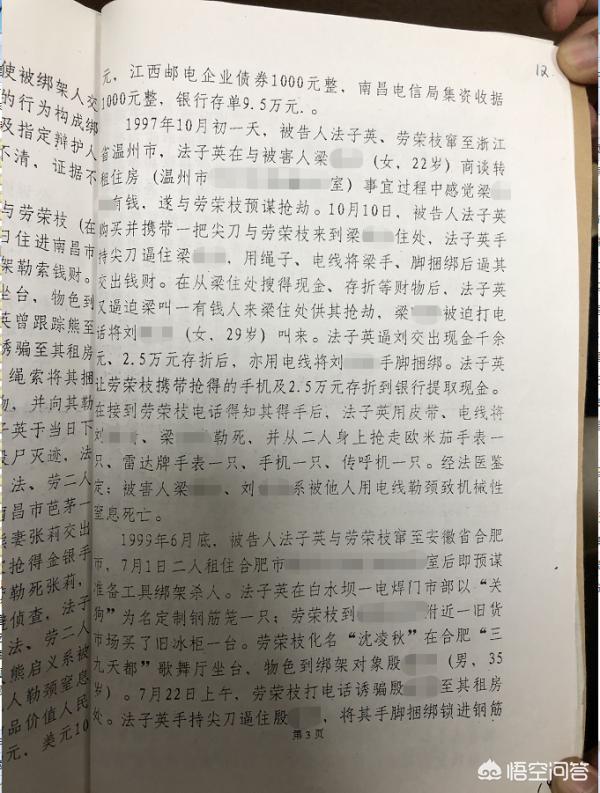 12
使被绑架人交
的行为构成绑
及指定辩护人
不清，证据不
与劳荣枝（在
日住进南昌市
架勒索钱财。
坐台，物色到
英曾跟踪熊至
诱骗至其租房
绳索将其捆
物，并向其勒
子英于当日下
尸灭迹，法
法、劳二人
南昌市芭茅一
妻张莉交出
抢得金银手
勒死张莉，
侦查，法子
法、劳二人
熊启义系被
人勒颈窒息
品价值人民
元、美元10
元，江西邮电企业债券1000元整，南昌电信局集资收据
1000元整，银行存单9.5万元.。
1997年10月初一天，被告人法子英、劳荣枝窜至浙江
省温州市，法子英在与被害人梁（女，22岁）商谈转
租住房（温州市室）事宜过程中感觉梁
有钱，遂与劳荣枝预谋抢劫。10月10日，被告人法子英
购买并携带一把尖刀与劳荣枝来到梁住处，法子英手
持尖刀逼住梁，用绳子、电线将梁手、脚捆绑后逼其
交出钱财。在从梁住处搜得现金、存折等财物后，法子英
又逼迫梁叫一有钱人来梁住处供其抢劫，梁被迫打电
话将刘（女，29岁）叫来。法子英逼刘交出现金千余
元、2.5万元存折后，亦用电线将刘手脚捆绑。法子英
让劳荣枝携带抢得的手机及2.5万元存折到银行提取现金。
在接到劳荣枝电话得知其得手后，法子英用皮带、电线将
刘、梁勒死，并从二人身上抢走欧米茄手表一
只、雷达牌手表一只、手机一只、传呼机一只。经法医鉴
定：被害人梁、刘系被他人用电线勒颈致机械性
窒息死亡。
1999年6月底，被告人法子英与劳荣枝窜至安徽省合肥
市，7月1日二人租住合肥市室后即预谋
准备工具绑架杀人。法子英在白水坝一电焊门市部以“关
狗”为名定制钢筋笼一只；劳荣枝到附近一旧货
市场买了旧冰柜一台。劳荣枝化名“沈凌秋”在合肥“三
九天都”歌舞厅坐台，物色到绑架对象殷（男，35
岁）。7月22日上午，劳荣枝打电话诱骗殷至其租房
处。法子英手持尖刀逼住殷，将其手脚捆绑锁进钢筋
第3页
悟空问答